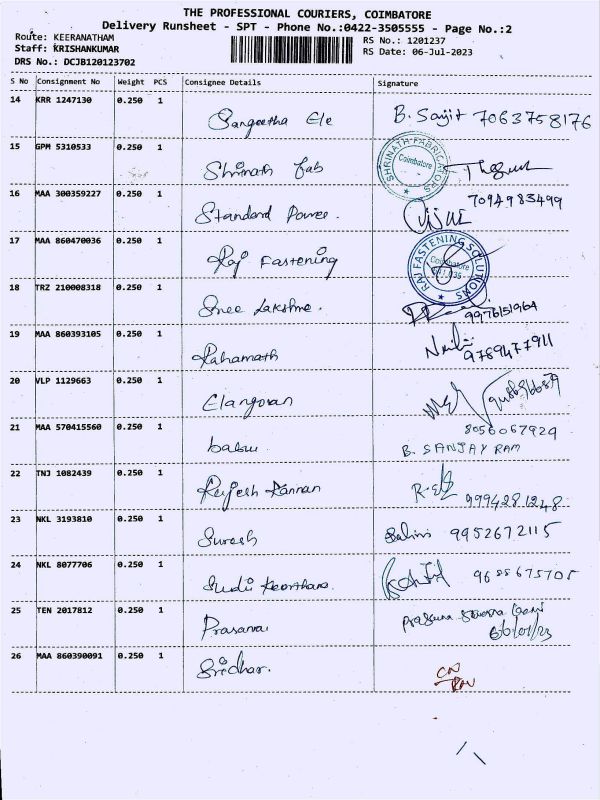 THE PROFESSIONAL COURIERS, COIMBATORE
Delivery Runsheet - SPT - Phone No.:0422-3505555 - Page No.:2
Route: KEERANATHAM RS No.: 1201237
Staff: KRISHANKUMAR RS Date: 06-Jul-2023
DRS No.: DCJB120123702
S No Consignment No Weight PCS Consignee Details Signature
14 KRR 1247130 0.250 1 Sangeetha Ele B. Sanjit 7063758176
15 GPM 5310533 0.250 1 Shrinath Fab
SHRINATH FABRICATORS
Coimbatore
16 MAA 300359227 0.250 1 Standard Power. 7094983499
17 MAA 860470036 0.250 1 Raj Fastening
RAJ FASTENING SOLUTIONS
Coimbatore
18 TRZ 210008318 0.250 1 Sree Lakshme. 9976151964
19 MAA 860393105 0.250 1 Rahamath 9789477911
20 VLP 1129663 0.250 1 Elangovan
21 MAA 570415560 0.250 1 babu 8056067929
B. SANJAY RAM
22 TNJ 1082439 0.250 1 Rajesh Kannan 9994281248
23 NKL 3193810 0.250 1 Suresh 9952672115
24 NKL 8077706 0.250 1 9688675705
25 TEN 2017812 0.250 1 Prasanna
26 MAA 860390091 0.250 1 Sridhar.